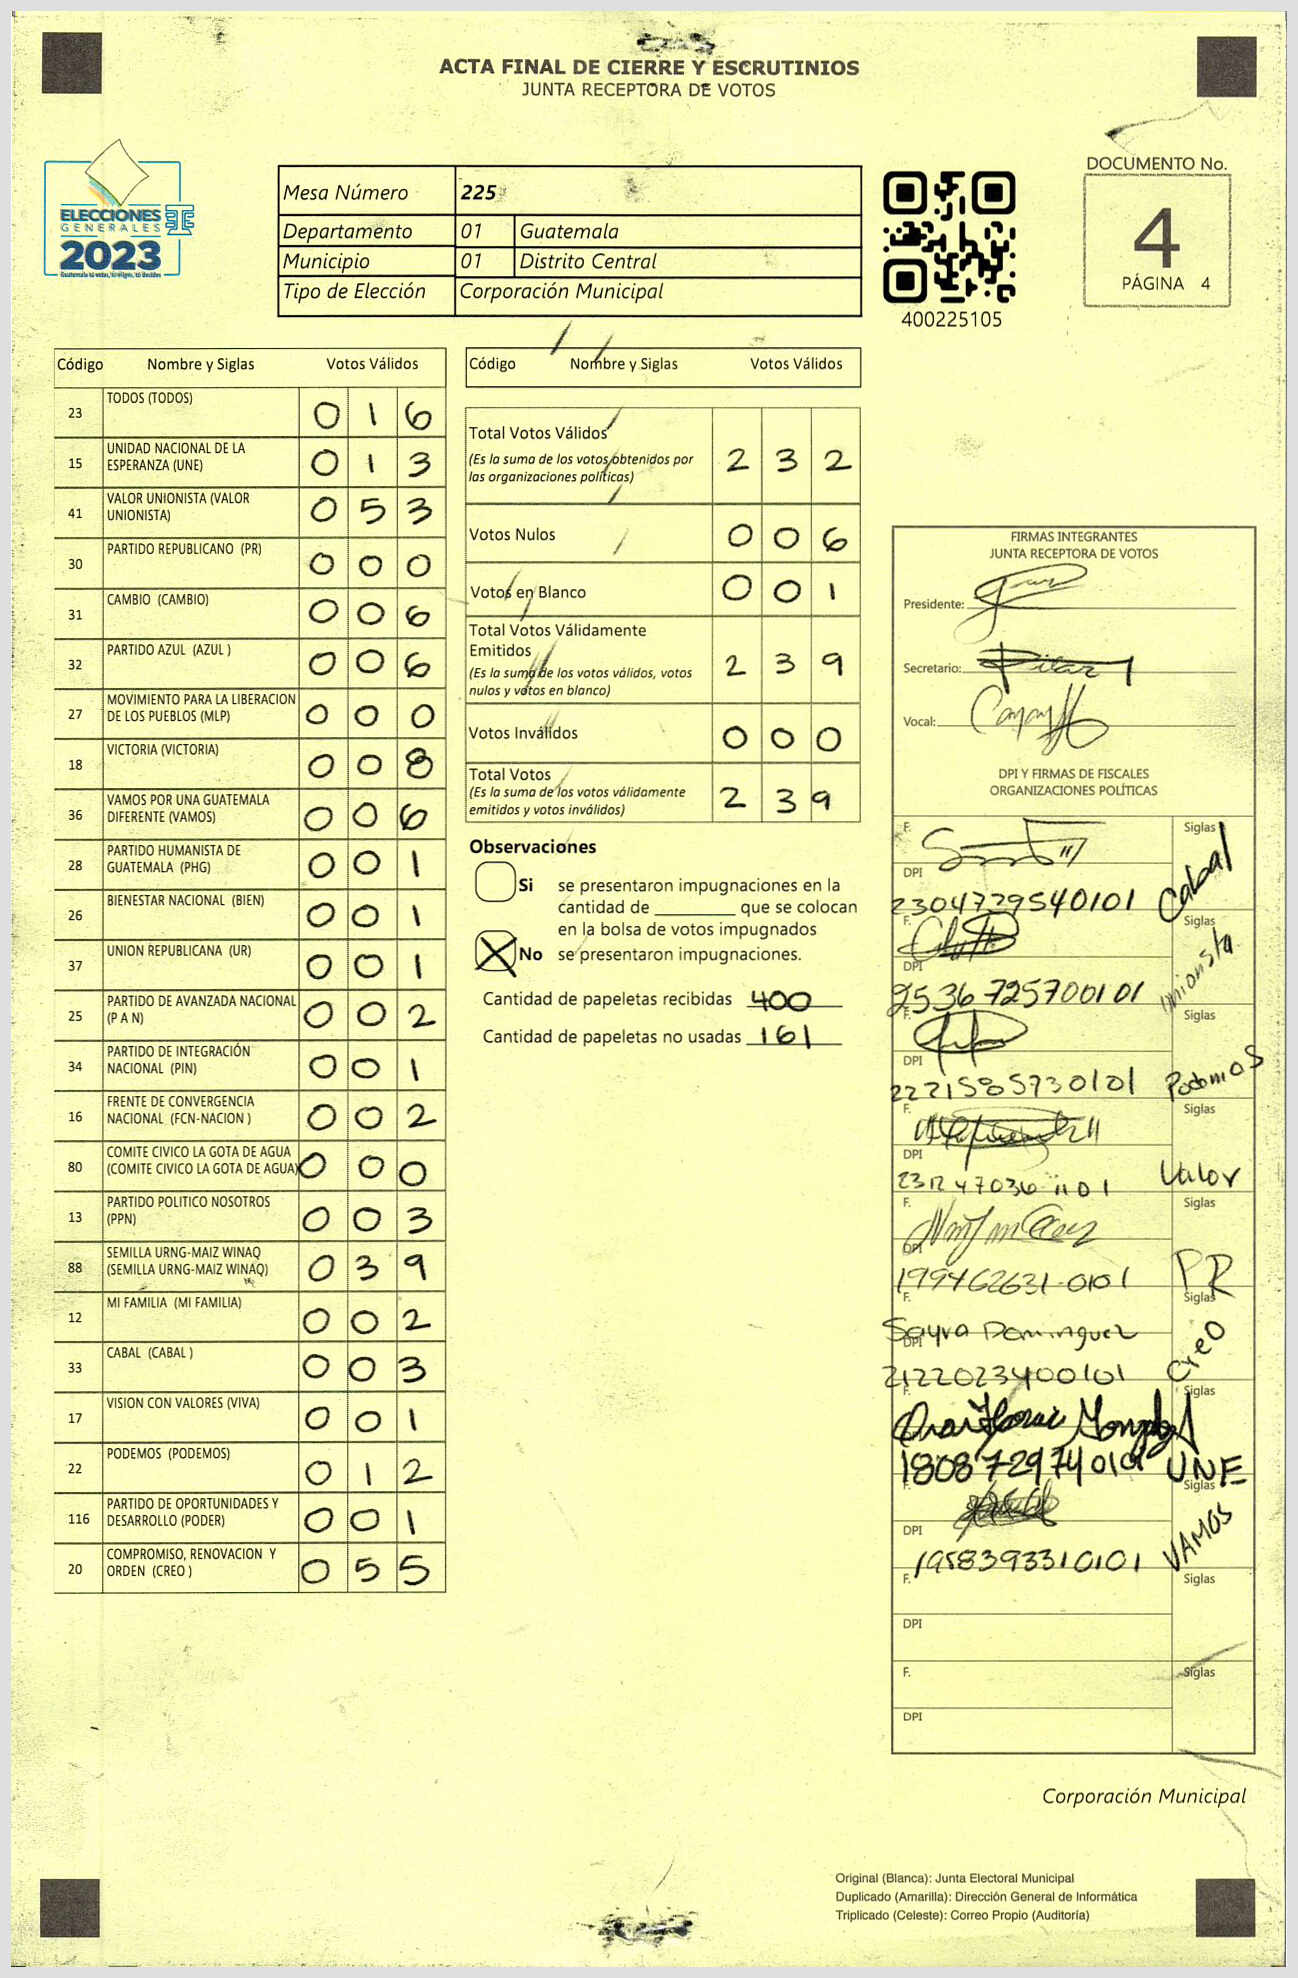 ACTA FINAL DE CIERRE Y ESCRUTINIOS
JUNTA RECEPTORA DE VOTOS
ELECCIONES
GENERALES
2023
Mesa Número 225
Departamento 01 Guatemala
Municipio 01 Distrito Central
Tipo de Elección Corporación Municipal
400225105
DOCUMENTO No.
4
PÁGINA 4
Código Nombre y Siglas Votos Válidos
23 TODOS (TODOS) 0 1 6
15 UNIDAD NACIONAL DE LA
ESPERANZA (UNE) 0 1 3
41 VALOR UNIONISTA (VALOR
UNIONISTA) 0 5 3
30 PARTIDO REPUBLICANO (PR) 0 0 0
31 CAMBIO (CAMBIO) 0 0 6
32 PARTIDO AZUL (AZUL ) 0 0 6
27 MOVIMIENTO PARA LA LIBERACION
DE LOS PUEBLOS (MLP) 0 0 0
18 VICTORIA (VICTORIA) 0 0 8
36 VAMOS POR UNA GUATEMALA
DIFERENTE (VAMOS) 0 0 6
28 PARTIDO HUMANISTA DE
GUATEMALA (PHG) 0 0 1
26 BIENESTAR NACIONAL (BIEN) 0 0 1
37 UNION REPUBLICANA (UR) 0 0 1
25 PARTIDO DE AVANZADA NACIONAL
(P A N) 0 0 2
34 PARTIDO DE INTEGRACIÓN
NACIONAL (PIN) 0 0 1
16 FRENTE DE CONVERGENCIA
NACIONAL (FCN-NACION ) 0 0 2
80 COMITE CIVICO LA GOTA DE AGUA
(COMITE CIVICO LA GOTA DE AGUA) 0 0 0
13 PARTIDO POLITICO NOSOTROS
(PPN) 0 0 3
88 SEMILLA URNG-MAIZ WINAQ
(SEMILLA URNG-MAIZ WINAQ) 0 3 9
12 MI FAMILIA (MI FAMILIA) 0 0 2
33 CABAL (CABAL ) 0 0 3
17 VISION CON VALORES (VIVA) 0 0 1
22 PODEMOS (PODEMOS) 0 1 2
116 PARTIDO DE OPORTUNIDADES Y
DESARROLLO (PODER) 0 0 1
20 COMPROMISO, RENOVACION Y
ORDEN (CREO ) 0 5 5
Código Nombre y Siglas Votos Válidos
Total Votos Válidos
(Es la suma de los votos obtenidos por
las organizaciones políticas) 2 3 2
Votos Nulos 0 0 6
Votos en Blanco 0 0 1
Total Votos Válidamente
Emitidos
(Es la suma de los votos válidos, votos
nulos y votos en blanco) 2 3 9
Votos Inválidos 0 0 0
Total Votos
(Es la suma de los votos válidamente
emitidos y votos inválidos) 2 3 9
Observaciones
Si se presentaron impugnaciones en la
cantidad de ________ que se colocan
en la bolsa de votos impugnados
No se presentaron impugnaciones.
Cantidad de papeletas recibidas 400
Cantidad de papeletas no usadas 161
FIRMAS INTEGRANTES
JUNTA RECEPTORA DE VOTOS
Presidente:
Secretario: Pilar
Vocal:
DPI Y FIRMAS DE FISCALES
ORGANIZACIONES POLÍTICAS
F. Siglas
DPI
2304729540101 Cabal
F. Siglas
DPI
unionista
F. Siglas
DPI
2221585730101 Podemos
F. Siglas
DPI
Valor
F. Siglas
DPI
199462631-0101 PR
F. Siglas
Sayra Dominguez
DPI
2122023400101 Creo
F. Siglas
1808729740101 UNE
F. Siglas
DPI
1958393310101 VAMOS
F. Siglas
DPI
F. Siglas
DPI
Corporación Municipal
Original (Blanca): Junta Electoral Municipal
Duplicado (Amarilla): Dirección General de Informática
Triplicado (Celeste): Correo Propio (Auditoría)